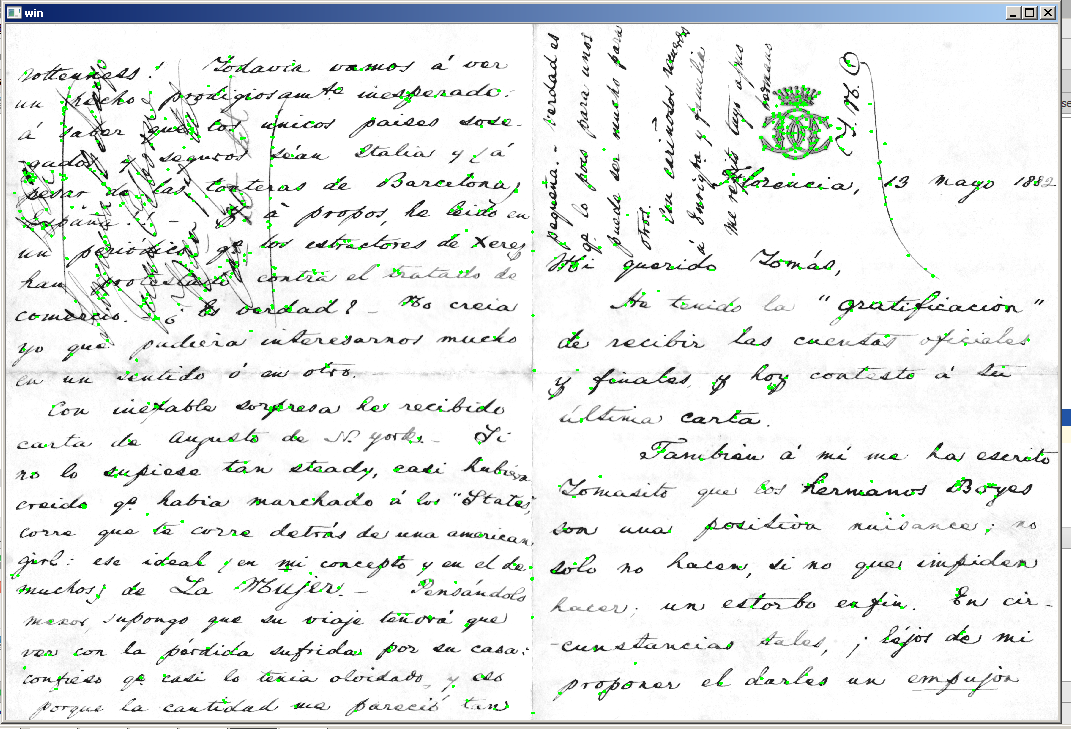 win
rottenness! Todavía vamos á ver
un hecho prodigiosamte inesperado:
á saber que los unicos paises sose-
gados y seguros sean Italia y (á
pesar de las tonteras de Barcelona)
España! - Y á propos, he leido en
un periódico qe los estractores de Xerez
han protestado contra el tratado de
comercio. - ¿ Es verdad? - No creia
yo que pudiera interesarnos mucho
en un sentido ó en otro.
Con inefable sorpresa he recibido
carta de Augusto de N. York. - Si
no lo supiese tan steady, casi hubiera
creido qe habia marchado á los "States,
corre que te corre detrás de una american
girl: ese ideal, en mi concepto y en el de
muchos, de La Mujer. - Pensándolo
menos, supongo que su viaje tendrá que
ver con la pérdida sufrida por su casa:
confieso qe casi lo tenia olvidado, y eso
porque la cantidad me pareció tan
pequeña. - Verdad es
qe lo poco para unos
puede ser mucho para
otros.
Con cariñosos recuerdos
á Enriqta y familia
me repito tuyo afmo
hermano
J. M. C
Florencia, 13 mayo 1882
Mi querido Tomás,
He tenido la "gratificacion"
de recibir las cuentas oficiales
y finales, y hoy contesto á su
última carta.
Tambien á mi me ha escrito
Tomasito que los hermanos Boyes
son una positive nuisance; no
solo no hacen, si no que impiden
hacer; un estorbo enfin. En cir-
-cunstancias tales, ; léjos de mi
proponer el darles un empujon